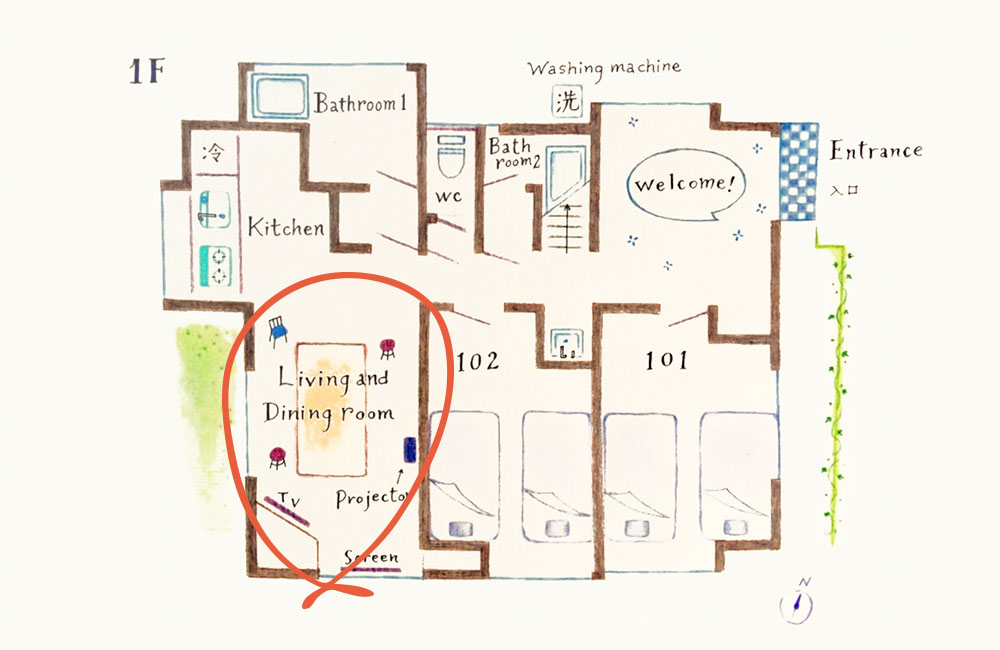 1F
Washing machine
洗
Bathroom 1
冷
Bath
room2
WC
welcome!
Entrance
入口
Kitchen
102
101
Living and
Dining room
TV
Projector
Screen
N